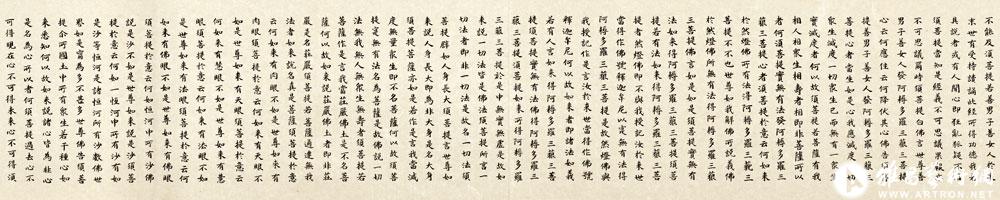 不能及須菩提若善男子善女人於後
末世有受持讀誦此經所得功德我若
具說者或有人聞心即狂亂狐疑不信
須菩提當知是經義不可思議果報亦
不可思議爾時須菩提白佛言世尊善
男子善女人發阿耨多羅三藐三菩提
心云何應住云何降伏其心佛告須菩
提善男子善女人發阿耨多羅三藐三
菩提心者當生如是心我應滅度一切
眾生滅度一切眾生已而無有一眾生
實滅度者何以故須菩提若菩薩有我
相人相眾生相壽者相即非菩薩所以
者何須菩提實無有法發阿耨多羅三
藐三菩提心者須菩提於意云何如來
於然燈佛所有法得阿耨多羅三藐三
菩提不不也世尊如我解佛所說義佛
於然燈佛所無有法得阿耨多羅三藐
三菩提佛言如是如是須菩提實無有
法如來得阿耨多羅三藐三菩提須菩
提若有法如來得阿耨多羅三藐三菩
提者然燈佛即不與我授記汝於來世
當得作佛號釋迦牟尼以實無有法得
阿耨多羅三藐三菩提是故然燈佛與
我授記作是言汝於來世當得作佛號
釋迦牟尼何以故如來者即諸法如義
若有人言如來得阿耨多羅三藐三菩
提須菩提實無有法佛得阿耨多羅三
藐三菩提須菩提如來所得阿耨多羅
三藐三菩提於是中無實無虛是故如
來說一切法皆是佛法須菩提所言一
切法者即非一切法是故名一切法須
菩提譬如人身長大須菩提言世尊如
來說人身長大即為非大身是名大身
須菩提菩薩亦如是若作是言我當滅
度無量眾生即不名菩薩何以故須菩
提實無有法名為菩薩是故佛說一切
法無我無人無眾生無壽者須菩提若
菩薩作是言我當莊嚴佛土是不名菩
薩何以故如來說莊嚴佛土者即非莊
嚴是名莊嚴須菩提若菩薩通達無我
法者如來說名真是菩薩須菩提於意
云何如來有肉眼不如是世尊如來有
肉眼須菩提於意云何如來有天眼不
如是世尊如來有天眼須菩提於意云
何如來有慧眼不如是世尊如來有慧
眼須菩提於意云何如來有法眼不如
是世尊如來有法眼須菩提於意云何
如來有佛眼不如是世尊如來有佛眼
須菩提於意云何如恒河中所有沙佛
說是沙不如是世尊如來說是沙須菩
提於意云何如一恒河中所有沙有如
是沙等恒河是諸恒河所有沙數佛世
界如是寧為多不甚多世尊佛告須菩
提爾所國土中所有眾生若干種心如
來悉知何以故如來說諸心皆為非心
是名為心所以者何須菩提過去心不
可得現在心不可得未來心不可得須
WWW.ARTRON.NET